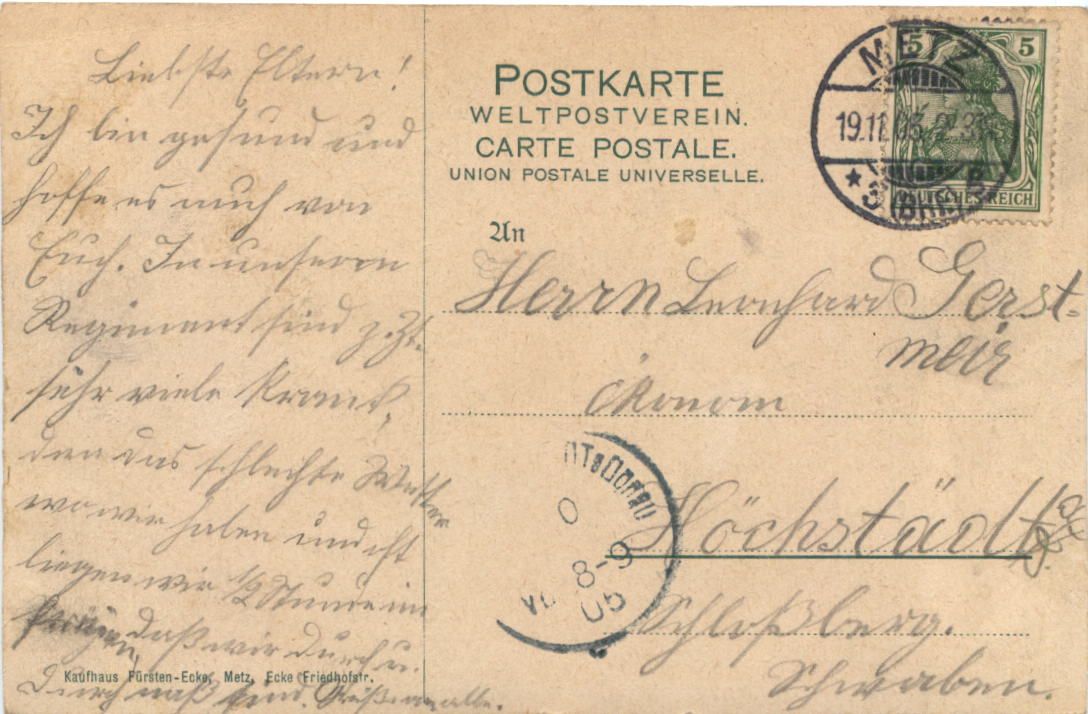 Liebste Eltern!
Ich bin gesund und
hoffe es auch von
Euch. In unserem
Regiment sind z. Zt.
sehr viele krank,
denn das schlechte Wetter
wo wir haben und oft
liegen wir 1/2 Stunde im
daß wir durch u.
durch naß sind. Grüße an alle.
Kaufhaus Fürsten-Ecke, Metz, Ecke Friedhofstr.
POSTKARTE
WELTPOSTVEREIN.
CARTE POSTALE.
UNION POSTALE UNIVERSELLE.
METZ
19.11.05
* 3 (BHF.) B
5 5
DEUTSCHES REICH
An
Herrn Leonhard Gerst-
meir
Ökonom
Höchstädt a/D.
Schloßberg.
Schwaben.
DT a Donau
8-9
05